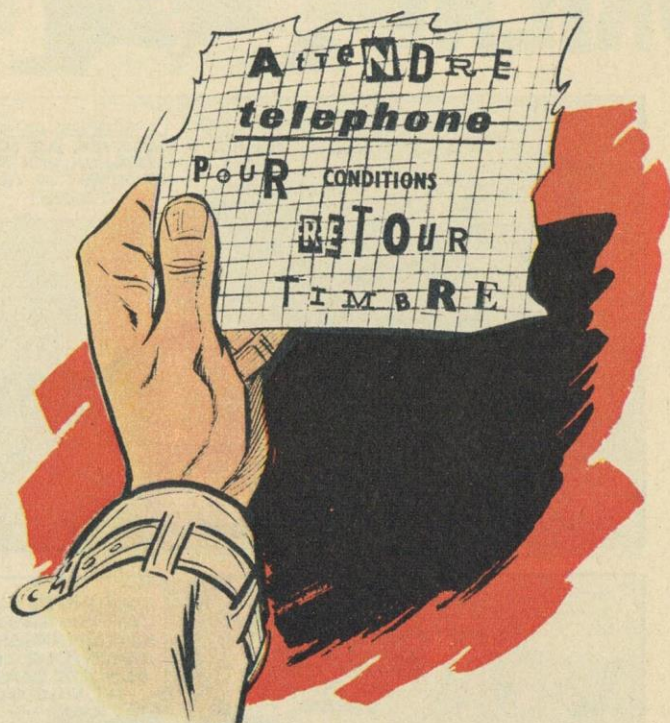 AtteNDRE
telephone
PoUR CONDITIONS
RETOUR
TIMBRE